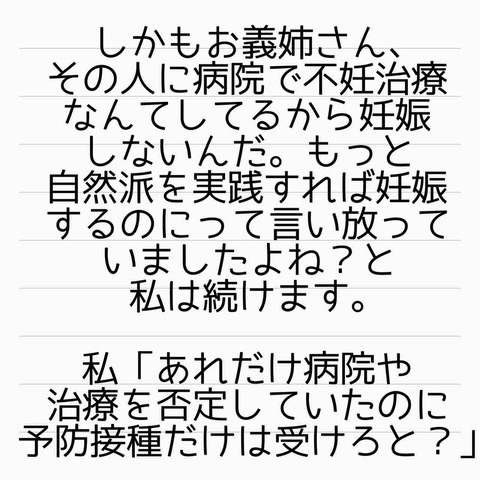 しかもお義姉さん、
その人に病院で不妊治療
なんてしてるから妊娠
しないんだ。もっと
自然派を実践すれば妊娠
するのにって言い放って
いましたよね？と
私は続けます。
私「あれだけ病院や
治療を否定していたのに
予防接種だけは受けろと？」